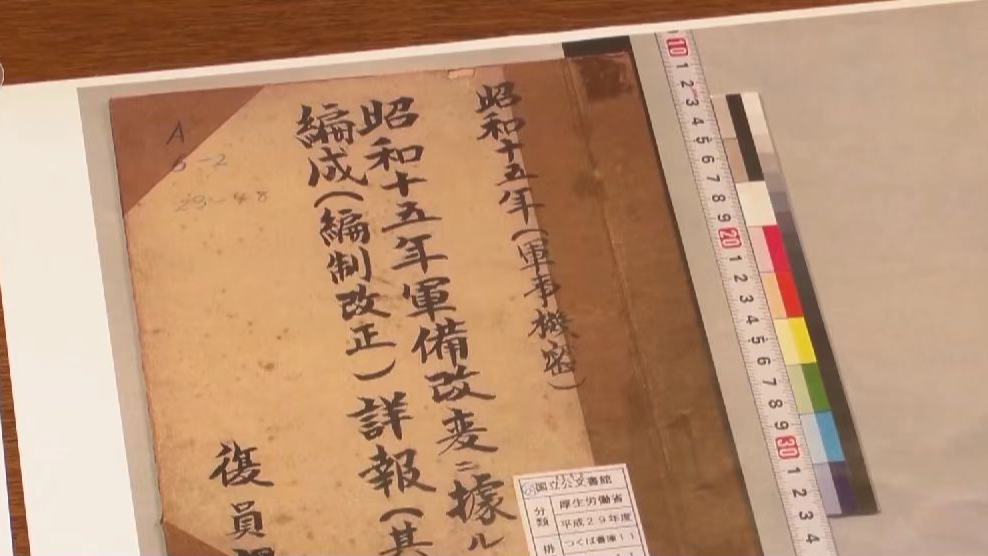 昭和十五年(軍事機密)
昭和十五年軍備改変ニ據ル
編成(編制改正)詳報(其
復員
A
5-2
23-48
国立公文書館
分類
厚生労働省
平成29年度
つくば書庫11
排
10 1 2 3 4 5 6 7 8 9 20 1 2 3 4 5 6 7 8 9 30 1 2 3 4